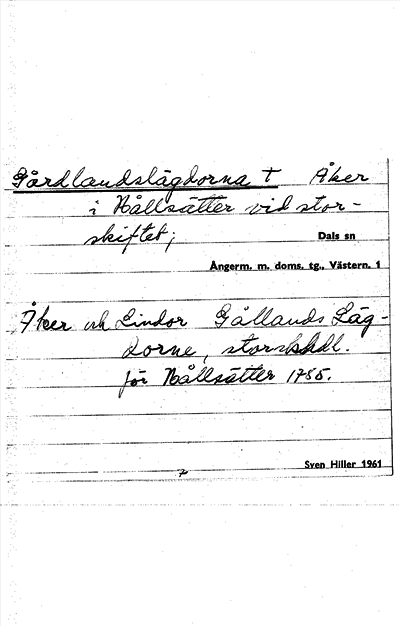 Gårdlandslägdorna † Åker
i Hållsätter vid stor-
skiftet;
Dals sn
Ångerm. m. doms. tg., Västern. 1
Åker och Lindor Gållands Läg-
dorne, storskhdl.
för Hållsätter 1785.
Sven Hiller 1961